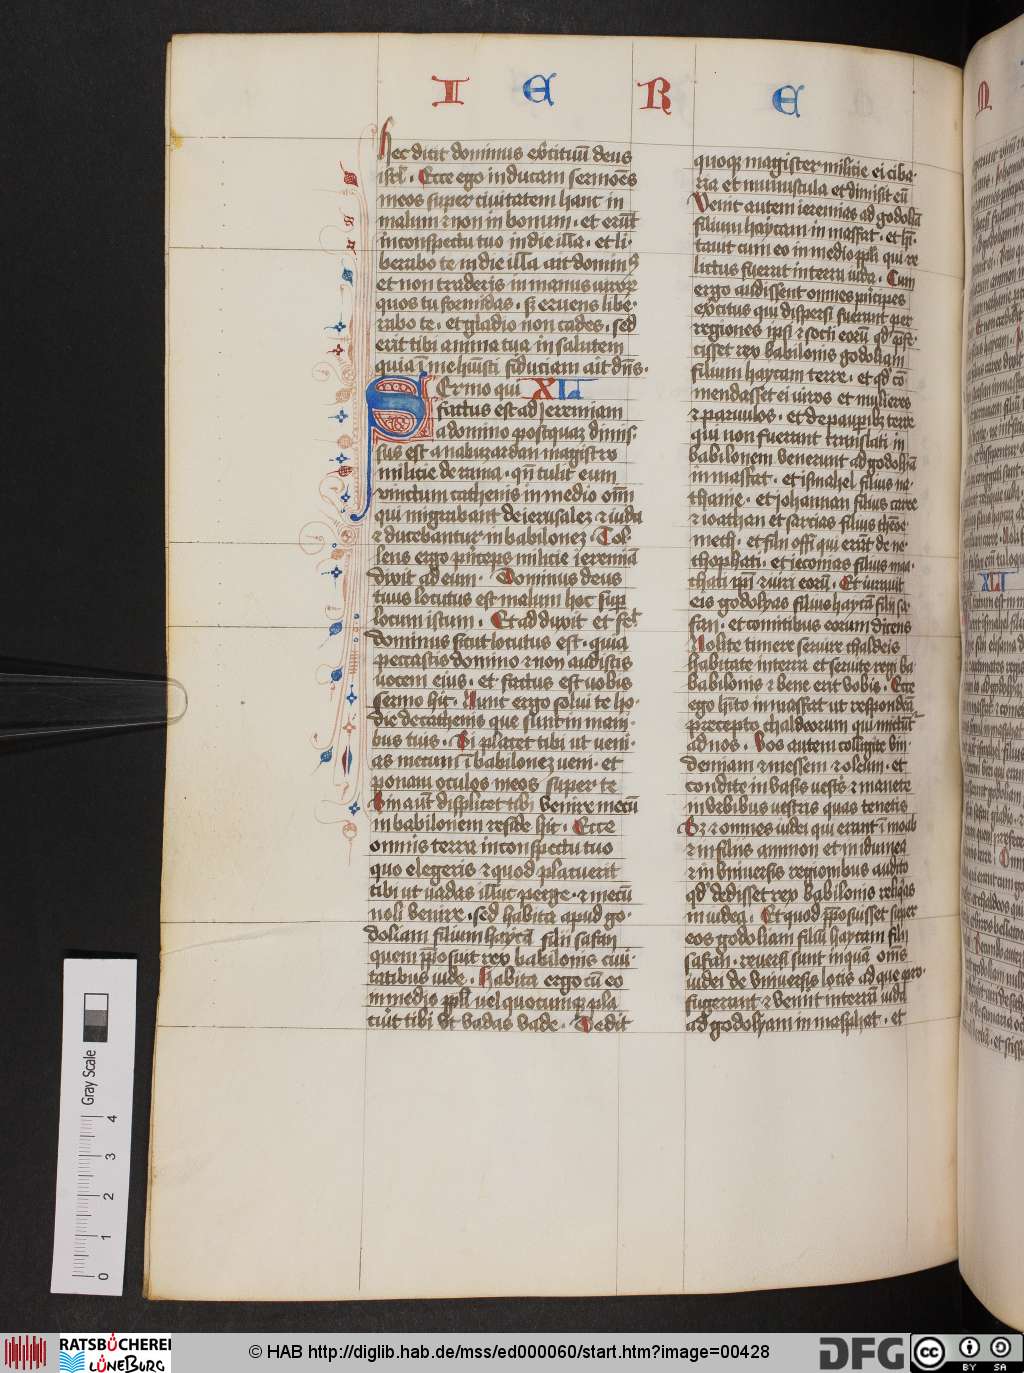 I E R E
hec dicit dominus exercituū deus
isrl̄ . Ecce ego inducam sermōes
meos super ciuitatem hanc in
malum ⁊ non in bonum . et erūt
in conspectu tuo in die illa . et li-
berabo te in die illa ait dominꝰ
et non traderis in manus uiroꝝ
quos tu formidas . sꝫ eruens libe-
rabo te . et gladio non cades . sed
erit tibi anima tua in salutem
quia ī me hūisti fiduciam ait dn̄s .
Sermo qui XL
factus est ad Jeremiam
a domino postquaꝫ dimis-
sus est a nabuzardan magistro
milicie de rama . qn̄ tulit eum
vinctum cathenis in medio om̄i
qui migrabant de ierusalez ⁊ iuda
⁊ ducebantur in babilonez . Tol-
lens ergo princeps milicie ieremiā
dixit ad eum . Dominus deus
tuus locutus est malum hoc sup̄
locum istum . Et adduxit et fec̄
dominus sicut locutus est . quia
peccastis domino ⁊ non audistis
uocem eius . et factus est uobis
sermo hic . Nunc ergo solui te ho-
die de cathenis que sunt in mani-
bus tuis . Si placet tibi ut ueni-
as mecum ī babilonez ueni . et
ponam oculos meos super te
Sin aūt displicet tibi venire mecū
in babilonem reside hic . Ecce
omnis terra in conspectu tuo
quo elegeris ⁊ quod placuerit
tibi ut uadas illuc perge . ⁊ mecū
noli venire . sed habita apud go-
doliam filium haycā filii safan
quem p̄posuit rex babilonis ciui-
tatibus iude . Habita ergo cū eo
in medio pp̄li uel quocumqꝫ pla
cūit tibi vt vadas vade . Dedit
quoqꝫ magister milicie ei ciba-
ria et munuscula et dimisit eū
Venit autem ieremias ad godoliā
filium haycam in massat . et hīt-
tauit cum eo in medio pp̄li qui re
lictus fuerat in terra iuda . Cum
ergo audissent omnes pncipes
exercitus qui dispersi fuerant per
regiones ipsi ⁊ socii eorū qd̄ p̄fe-
cisset rex babilonis godoliam
filium haycam terre . et qd̄ cō-
mendasset ei uiros et mulieres
⁊ paruulos . et de paupibꝫ terre
qui non fuerant translati in
babilonem venerunt ad godoliā
in massat . et ismahel filius na-
thanie . et johannan filius caree
⁊ ionathan et sareias filius thene
meth . et filii offi qui erāt de ne-
thophati . et ieconias filius maa-
thati ipī ⁊ uiri eorū . Et iurauit
eis godolyas filius haycā filii sa-
fan . et comitibus eorum dicens
Nolite timere seruire chaldeis
habitate in terra et seruite regi ba
babilonis ⁊ bene erit vobis . Ecce
ego hīto in massat ut respondeā
precepto chaldeorum qui mittūt
ad nos . Vos autem colligite vin-
demiam ⁊ messem ⁊ oleum . et
condite in vasis vestris ⁊ manete
in vrbibus vestris quas tenetis
Sꝫ ⁊ omnes iudei qui erant ī moab
⁊ in filiis ammon et in idumea
⁊ in vniuersis regionibus audito
qd̄ dedisset rex babilonis reliqias
in iudea . Et quod p̄posuisset super
eos godoliam filiū haycam filii
safan . reuersi sunt inquā om̄s
iudei de vniuersis locis ad que pro-
fugerant ⁊ venīnt in terram iuda
ad godolyam in masphat . et
XLI
Gray Scale
0 1 2 3 4
RATSBÜCHEREI
LÜNEBURG
© HAB http://diglib.hab.de/mss/ed000060/start.htm?image=00428
DFG
cc BY SA